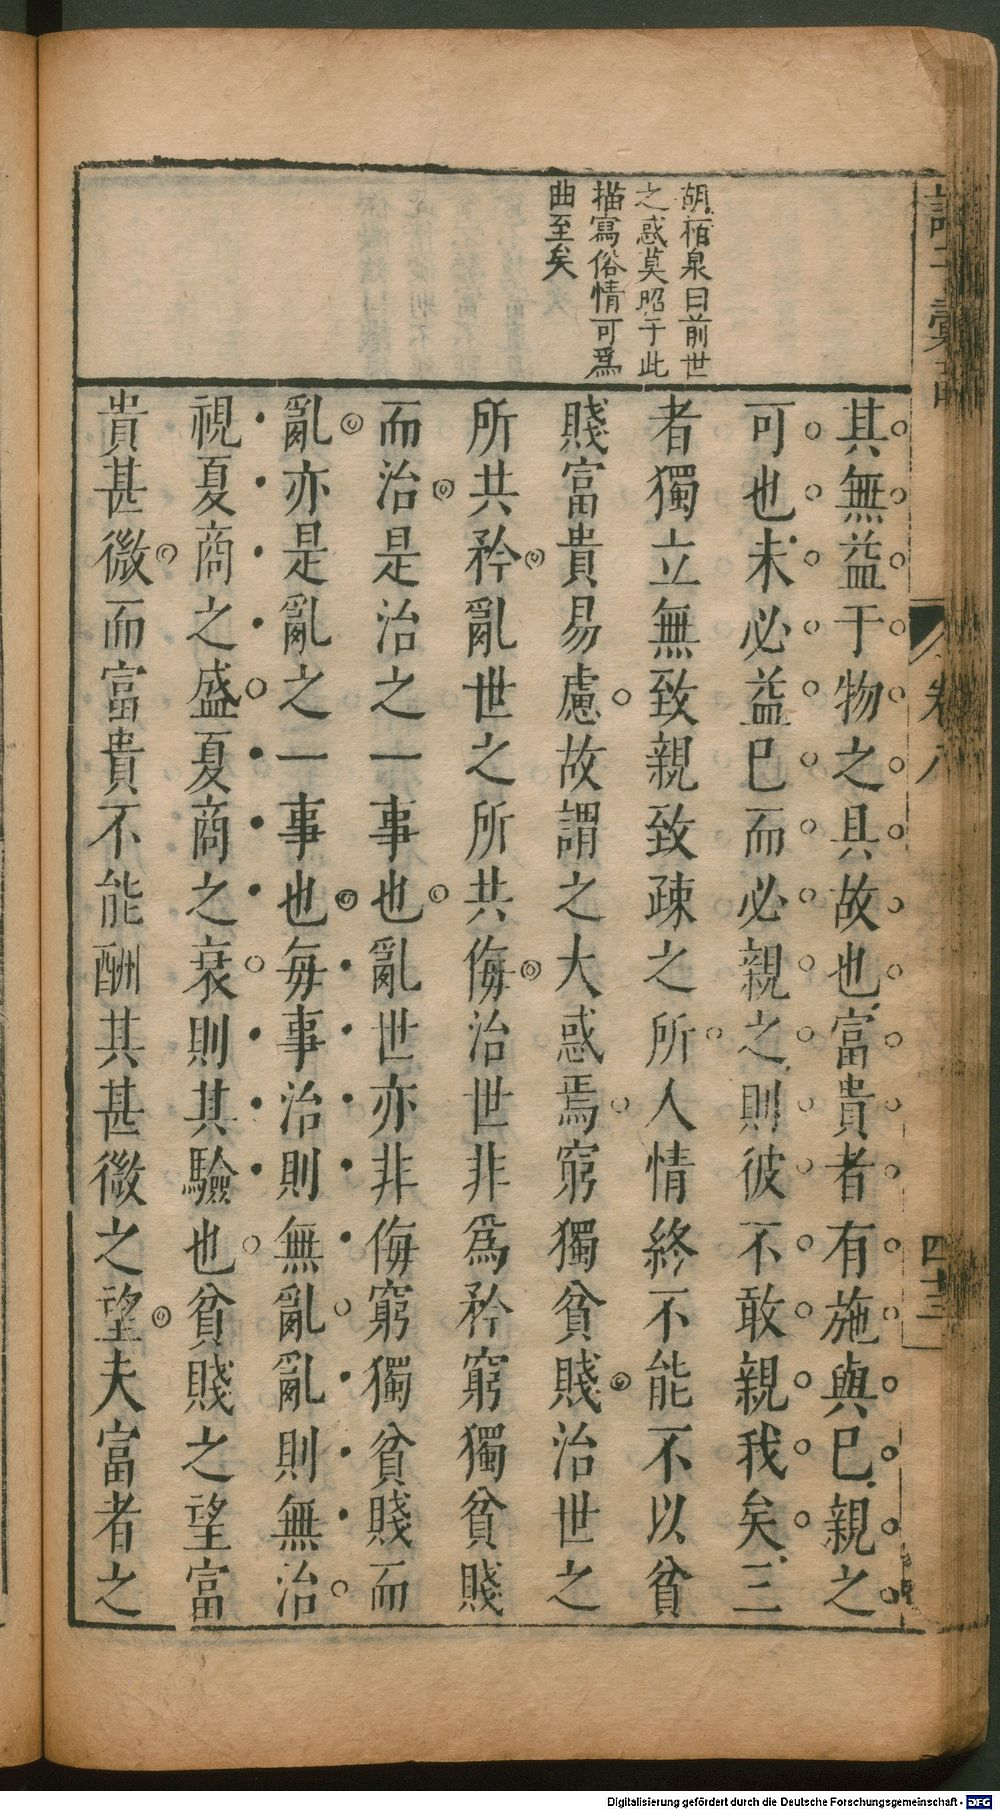 胡栢泉曰前世
之惑莫昭于此
描寫俗情可為
曲至矣
其無益于物之具故也富貴者有施與已親之
可也未必益已而必親之則彼不敢親我矣三
者獨立無致親致疎之所人情終不能不以貧
賤富貴易慮故謂之大惑焉窮獨貧賤治世之
所共矜亂世之所共侮治世非爲矜窮獨貧賤
而治是治之一事也亂世亦非侮窮獨貧賤而
亂亦是亂之一事也每事治則無亂亂則無治
視夏商之盛夏商之衰則其驗也貧賤之望富
貴甚微而富貴不能酬其甚微之望夫富者之
卷八
四十三
Digitalisierung gefördert durch die Deutsche Forschungsgemeinschaft - DFG